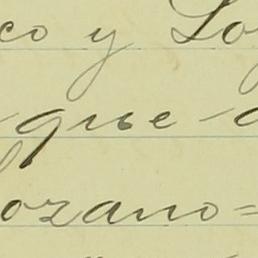 co y Lo
que a
ozano=